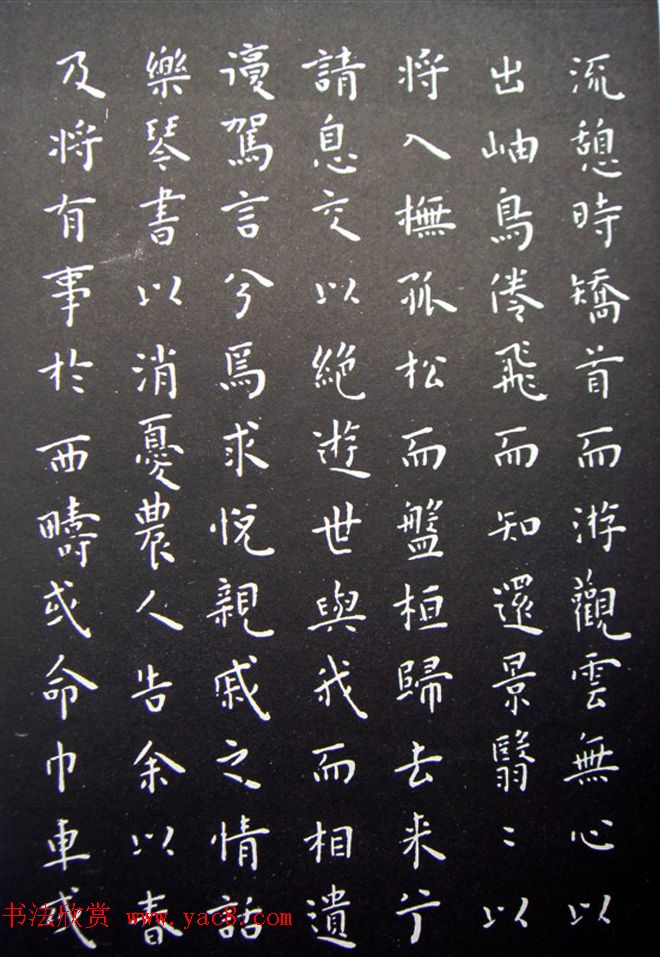 流憩時矯首而游觀雲無心以
出岫鳥倦飛而知還景翳〻以
将入撫孤松而盤桓歸去来兮
請息交以絶遊世與我而相遺
復駕言兮焉求悦親戚之情話
樂琴書以消憂農人告余以春
及将有事於西疇或命巾車或
书法欣赏 www.yac8.com